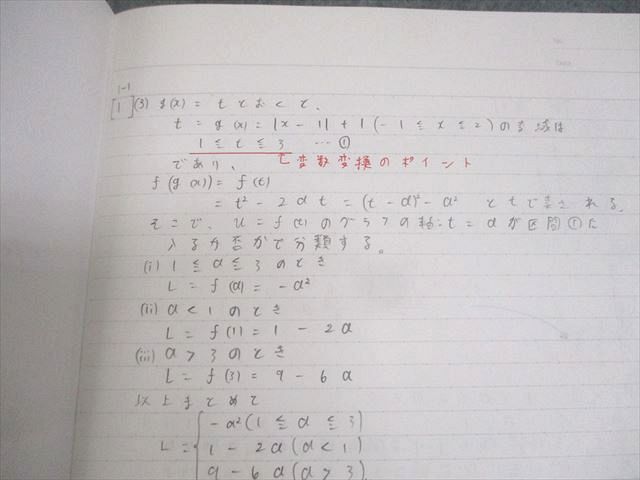 1-1
[1](3) g(x) = t とおくと、
t = g(x) = |x - 1| + 1 (-1 ≦ x ≦ 2) の変域は
1 ≦ t ≦ 3 … ①
であり、 変数変換のポイント
f(g(x)) = f(t)
= t² - 2at = (t - a)² - a² と t で表される。
そこで、u = f(t) のグラフの軸: t = a が区間①に
入るか否かで分類する。
(i) 1 ≦ a ≦ 3 のとき
L = f(a) = -a²
(ii) a < 1 のとき
L = f(1) = 1 - 2a
(iii) a > 3 のとき
L = f(3) = 9 - 6a
以上まとめて
L = { -a² (1 ≦ a ≦ 3)
1 - 2a (a < 1)
9 - 6a (a > 3)